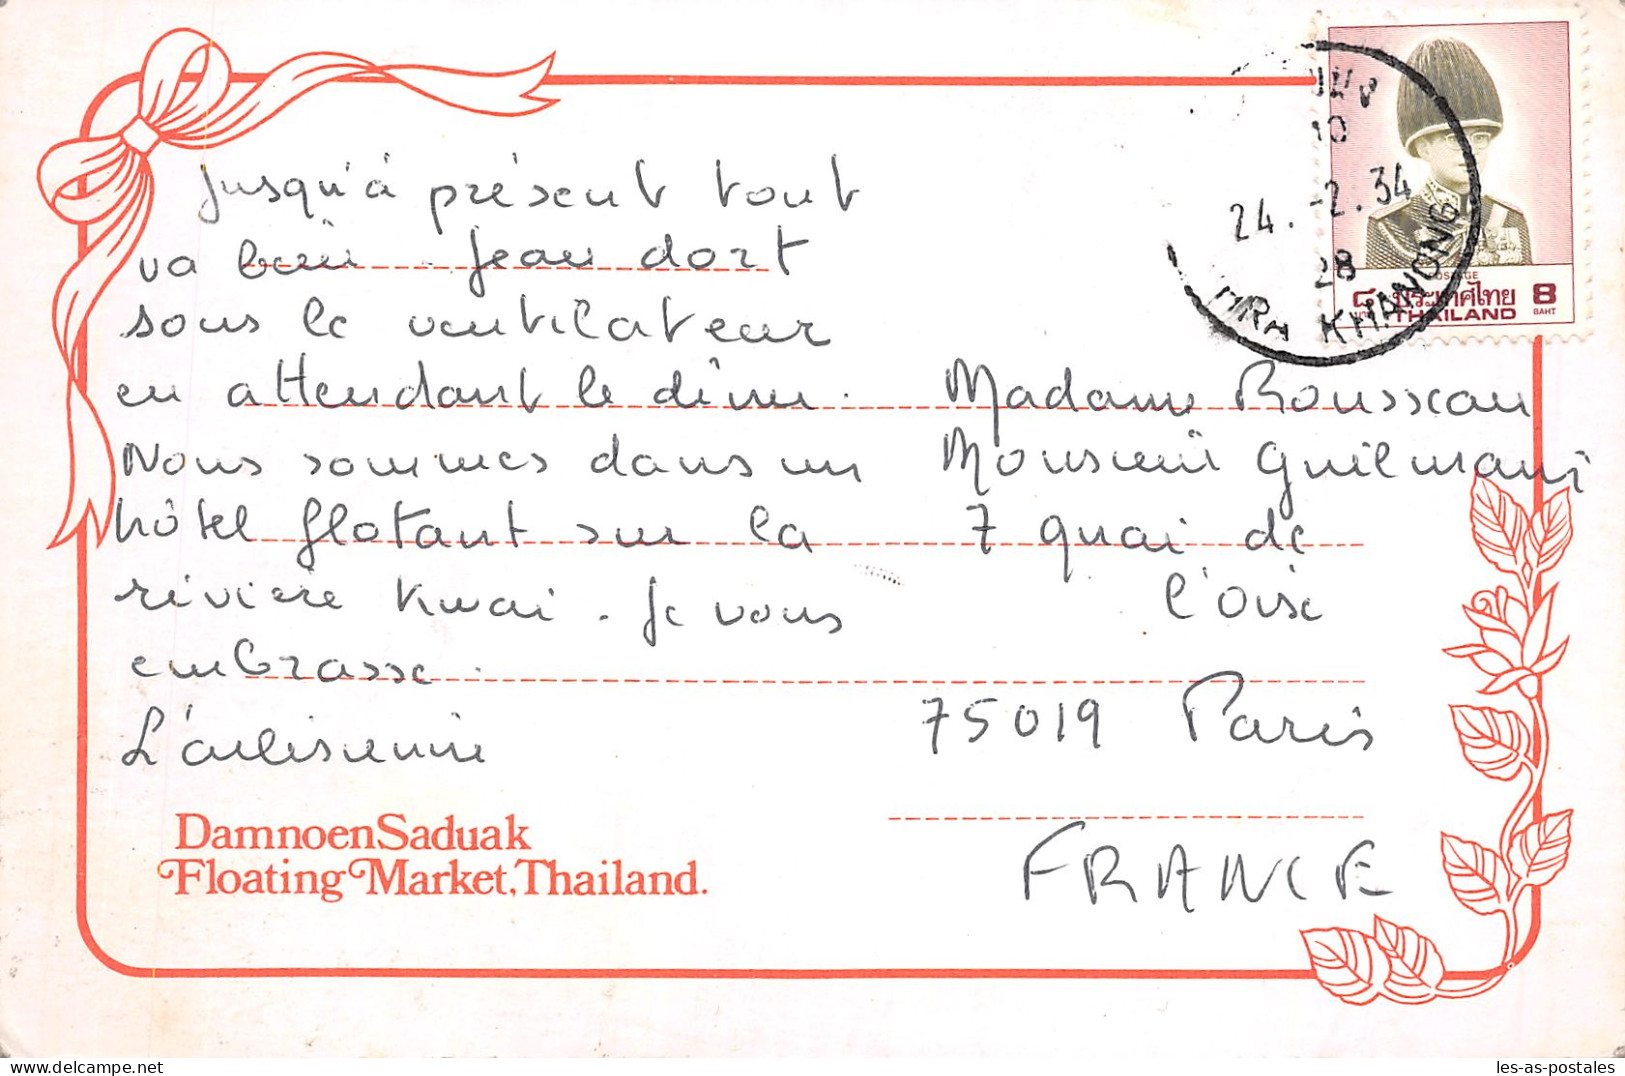 Jusqu'à présent tout
va bien. Jean dort
sous le ventilateur
en attendant le dîner.
Nous sommes dans un
hôtel flotant sur la
rivière Kwai. Je vous
embrasse.
DamnoenSaduak
Floating Market, Thailand.
10
24.-2.34
28
PHRA KHANONG
POSTAGE
๘ ประเทศไทย 8
บาท THAILAND BAHT
Madame Rousseau
Monsieur
7 quai de
l'oise
75019 Paris
FRANCE
les-as-postales